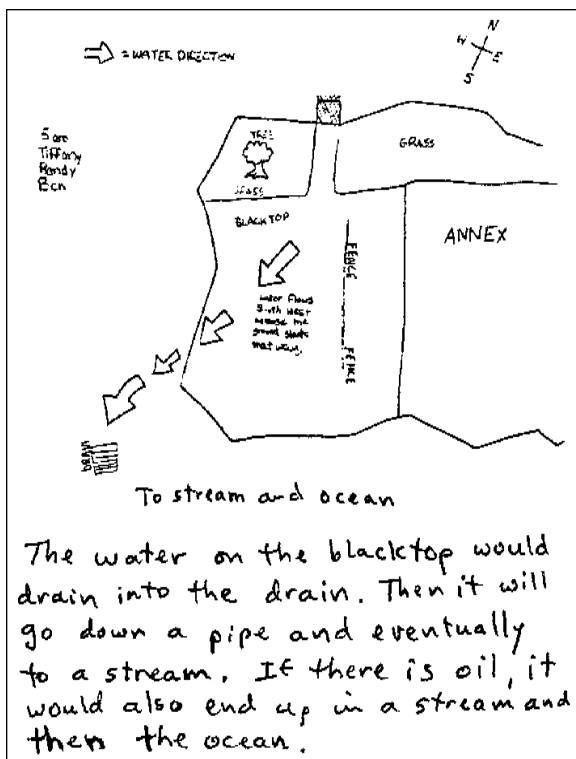 N
W
E
S
= WATER DIRECTION
Tiffany
Randy
TREE
GRASS
GRASS
BLACKTOP
ANNEX
FENCE
FENCE
water flows
South West
because the
ground slants
that way.
DRAIN
To stream and ocean
The water on the blacktop would
drain into the drain. Then it will
go down a pipe and eventually
to a stream. If there is oil, it
would also end up in a stream and
then the ocean.